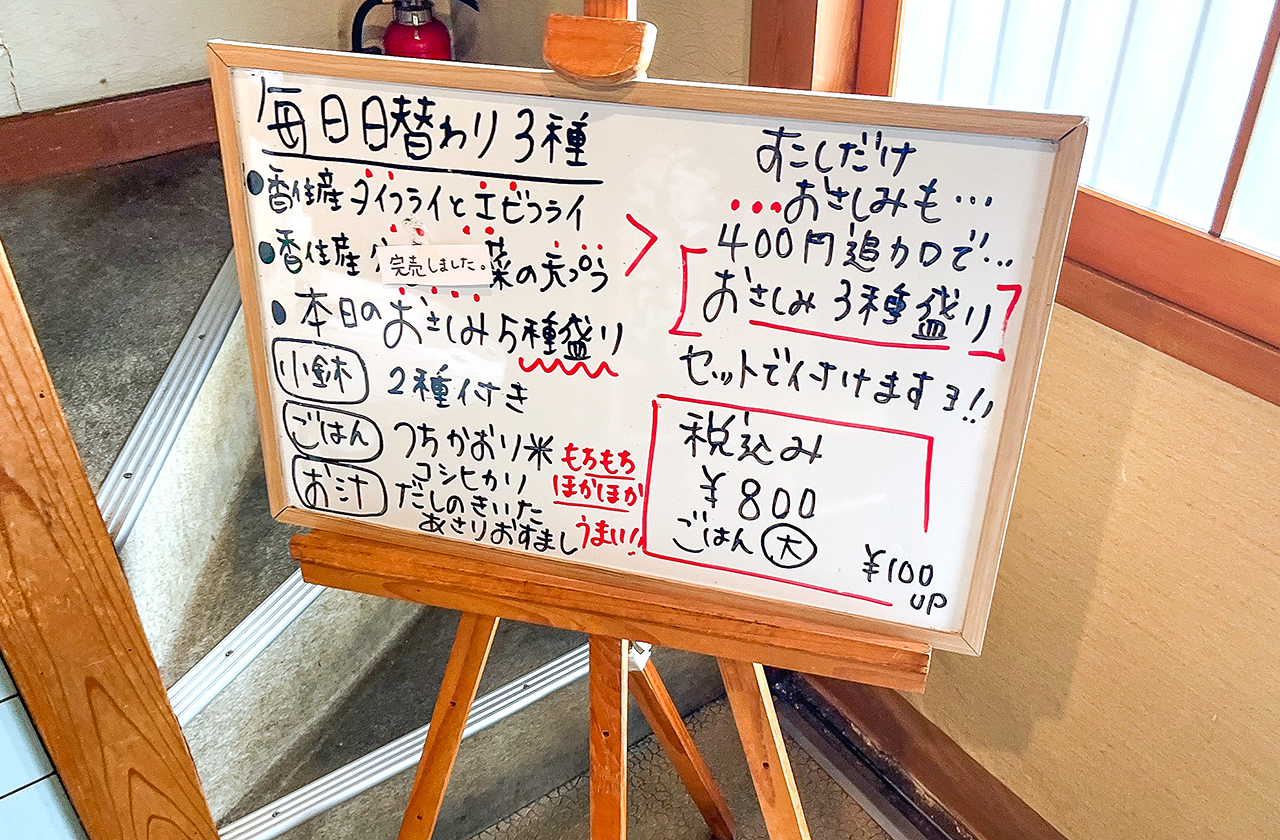 毎日日替わり3種
●香住産タイフライとエビフライ
●香住産
完売しました。
菜の天ぷら
●本日のおさしみ5種盛り
小鉢 2種付き
ごはん つちかおり米
コシヒカリ
もちもち
ほかほか
お汁 だしのきいた
あさりおすまし
うまい!!
すこしだけ
・・・おさしみも・・・
400円追加で・・・
おさしみ3種盛り
セットで付けますヨ!!
税込み
¥800
ごはん大 ¥100
UP